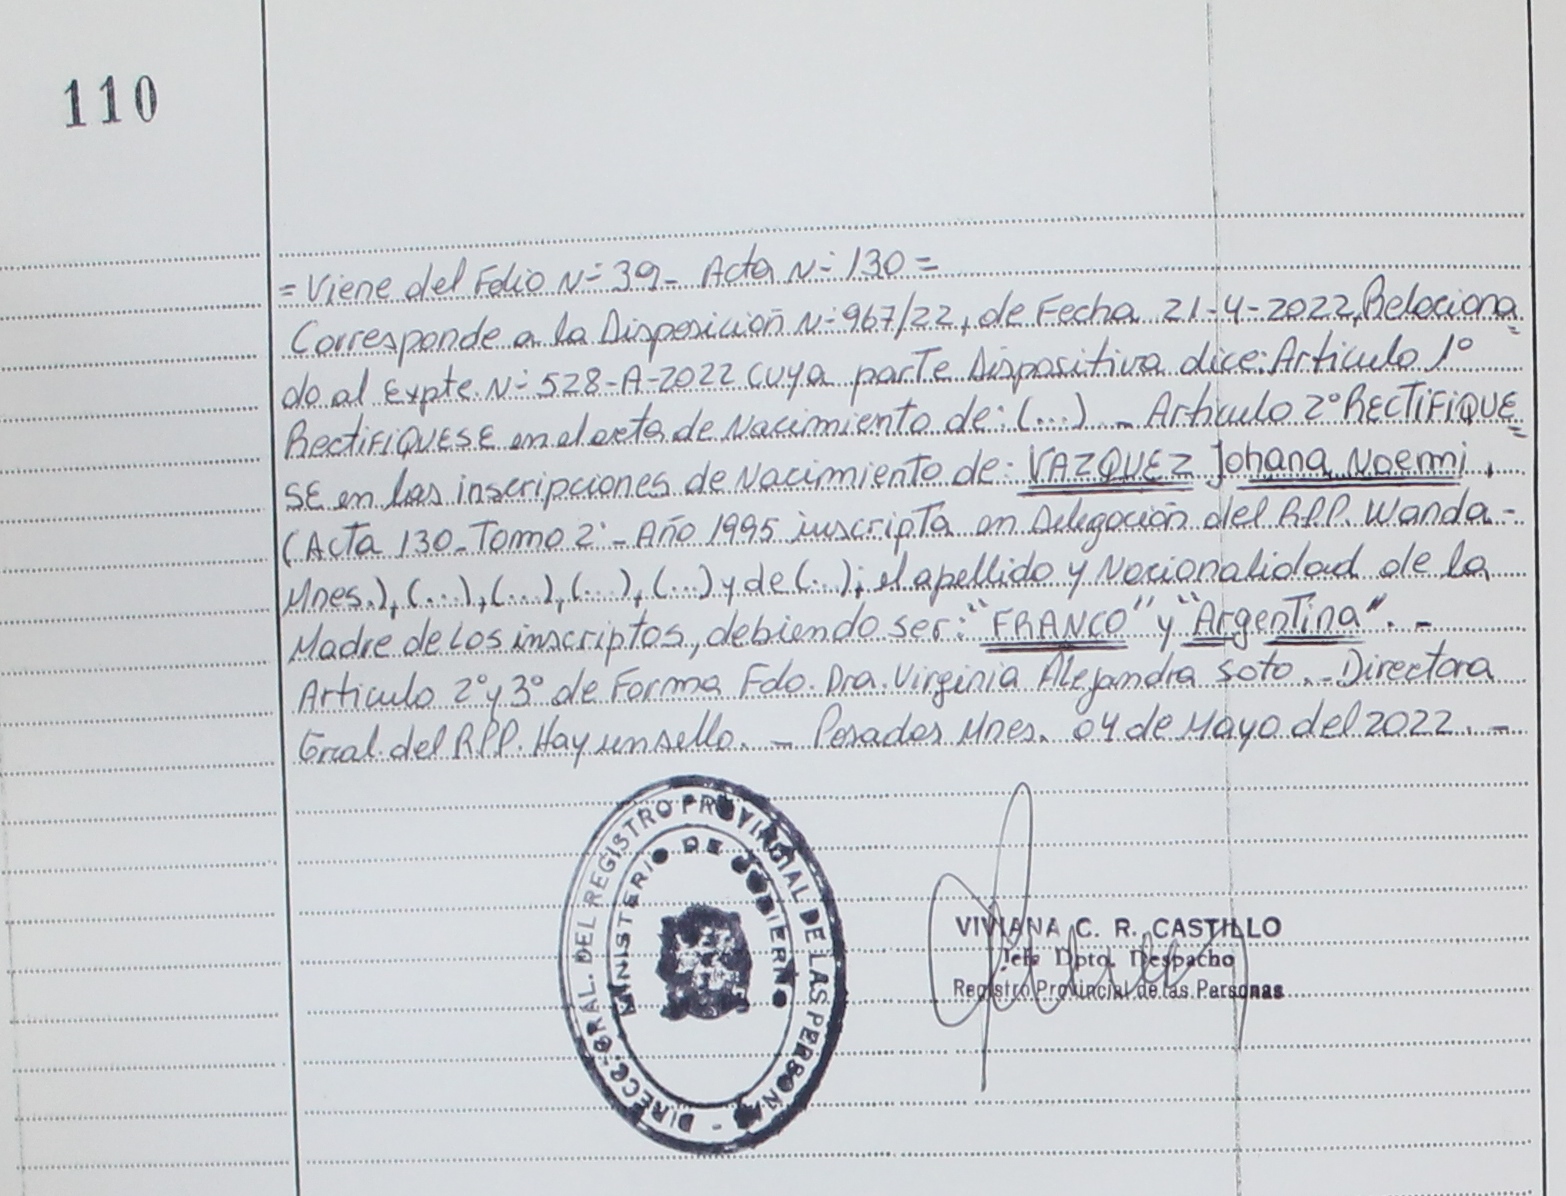 110
= Viene del Folio Nº 39_ Acta Nº 130 =
Corresponde a la Disposicion Nº 967/22, de Fecha 21-4-2022, Relaciona=
do al Expte. Nº 528-A-2022 cuya parte Dispositiva dice: Articulo 1º
RectiFIQUESE en el acta de Nacimiento de: (...) _ Articulo 2º RECTIFIQUE=
SE en las inscripciones de Nacimiento de: VAZQUEZ Johana Noemi,
(Acta 130_Tomo 2º - Año 1995 inscripta en Delegación del RPP. Wanda -
Mnes.), (...), (...), (...), (...) y de (...); el apellido y Nacionalidad de la
Madre de los inscriptos, debiendo ser: "FRANCO" y "Argentina". -
Articulo 2º y 3º de Forma Fdo. Dra. Virginia Alejandra Soto. - Directora
Gral. del RPP. Hay un sello. - Posadas Mnes. 04 de Mayo del 2022. -
DIRECC. GRAL. DEL REGISTRO PROVINCIAL DE LAS PERSONAS -
MINISTERIO DE GOBIERNO
VIVIANA C. R. CASTILLO
Jefe Dpto. Despacho
Registro Provincial de las Personas